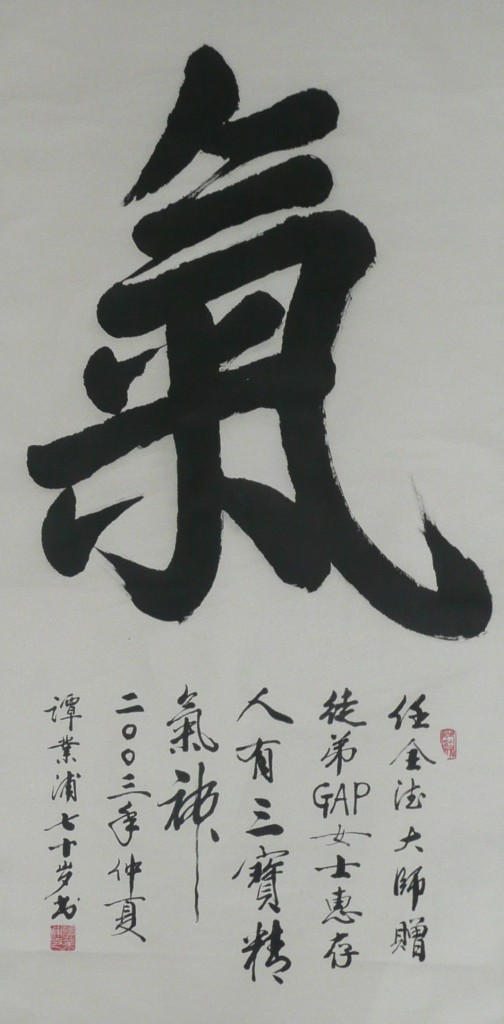 氣
任金德大師贈
徒弟GAP女士惠存
人有三寶精
氣神
二〇〇三年仲夏
譚業浦七十岁书